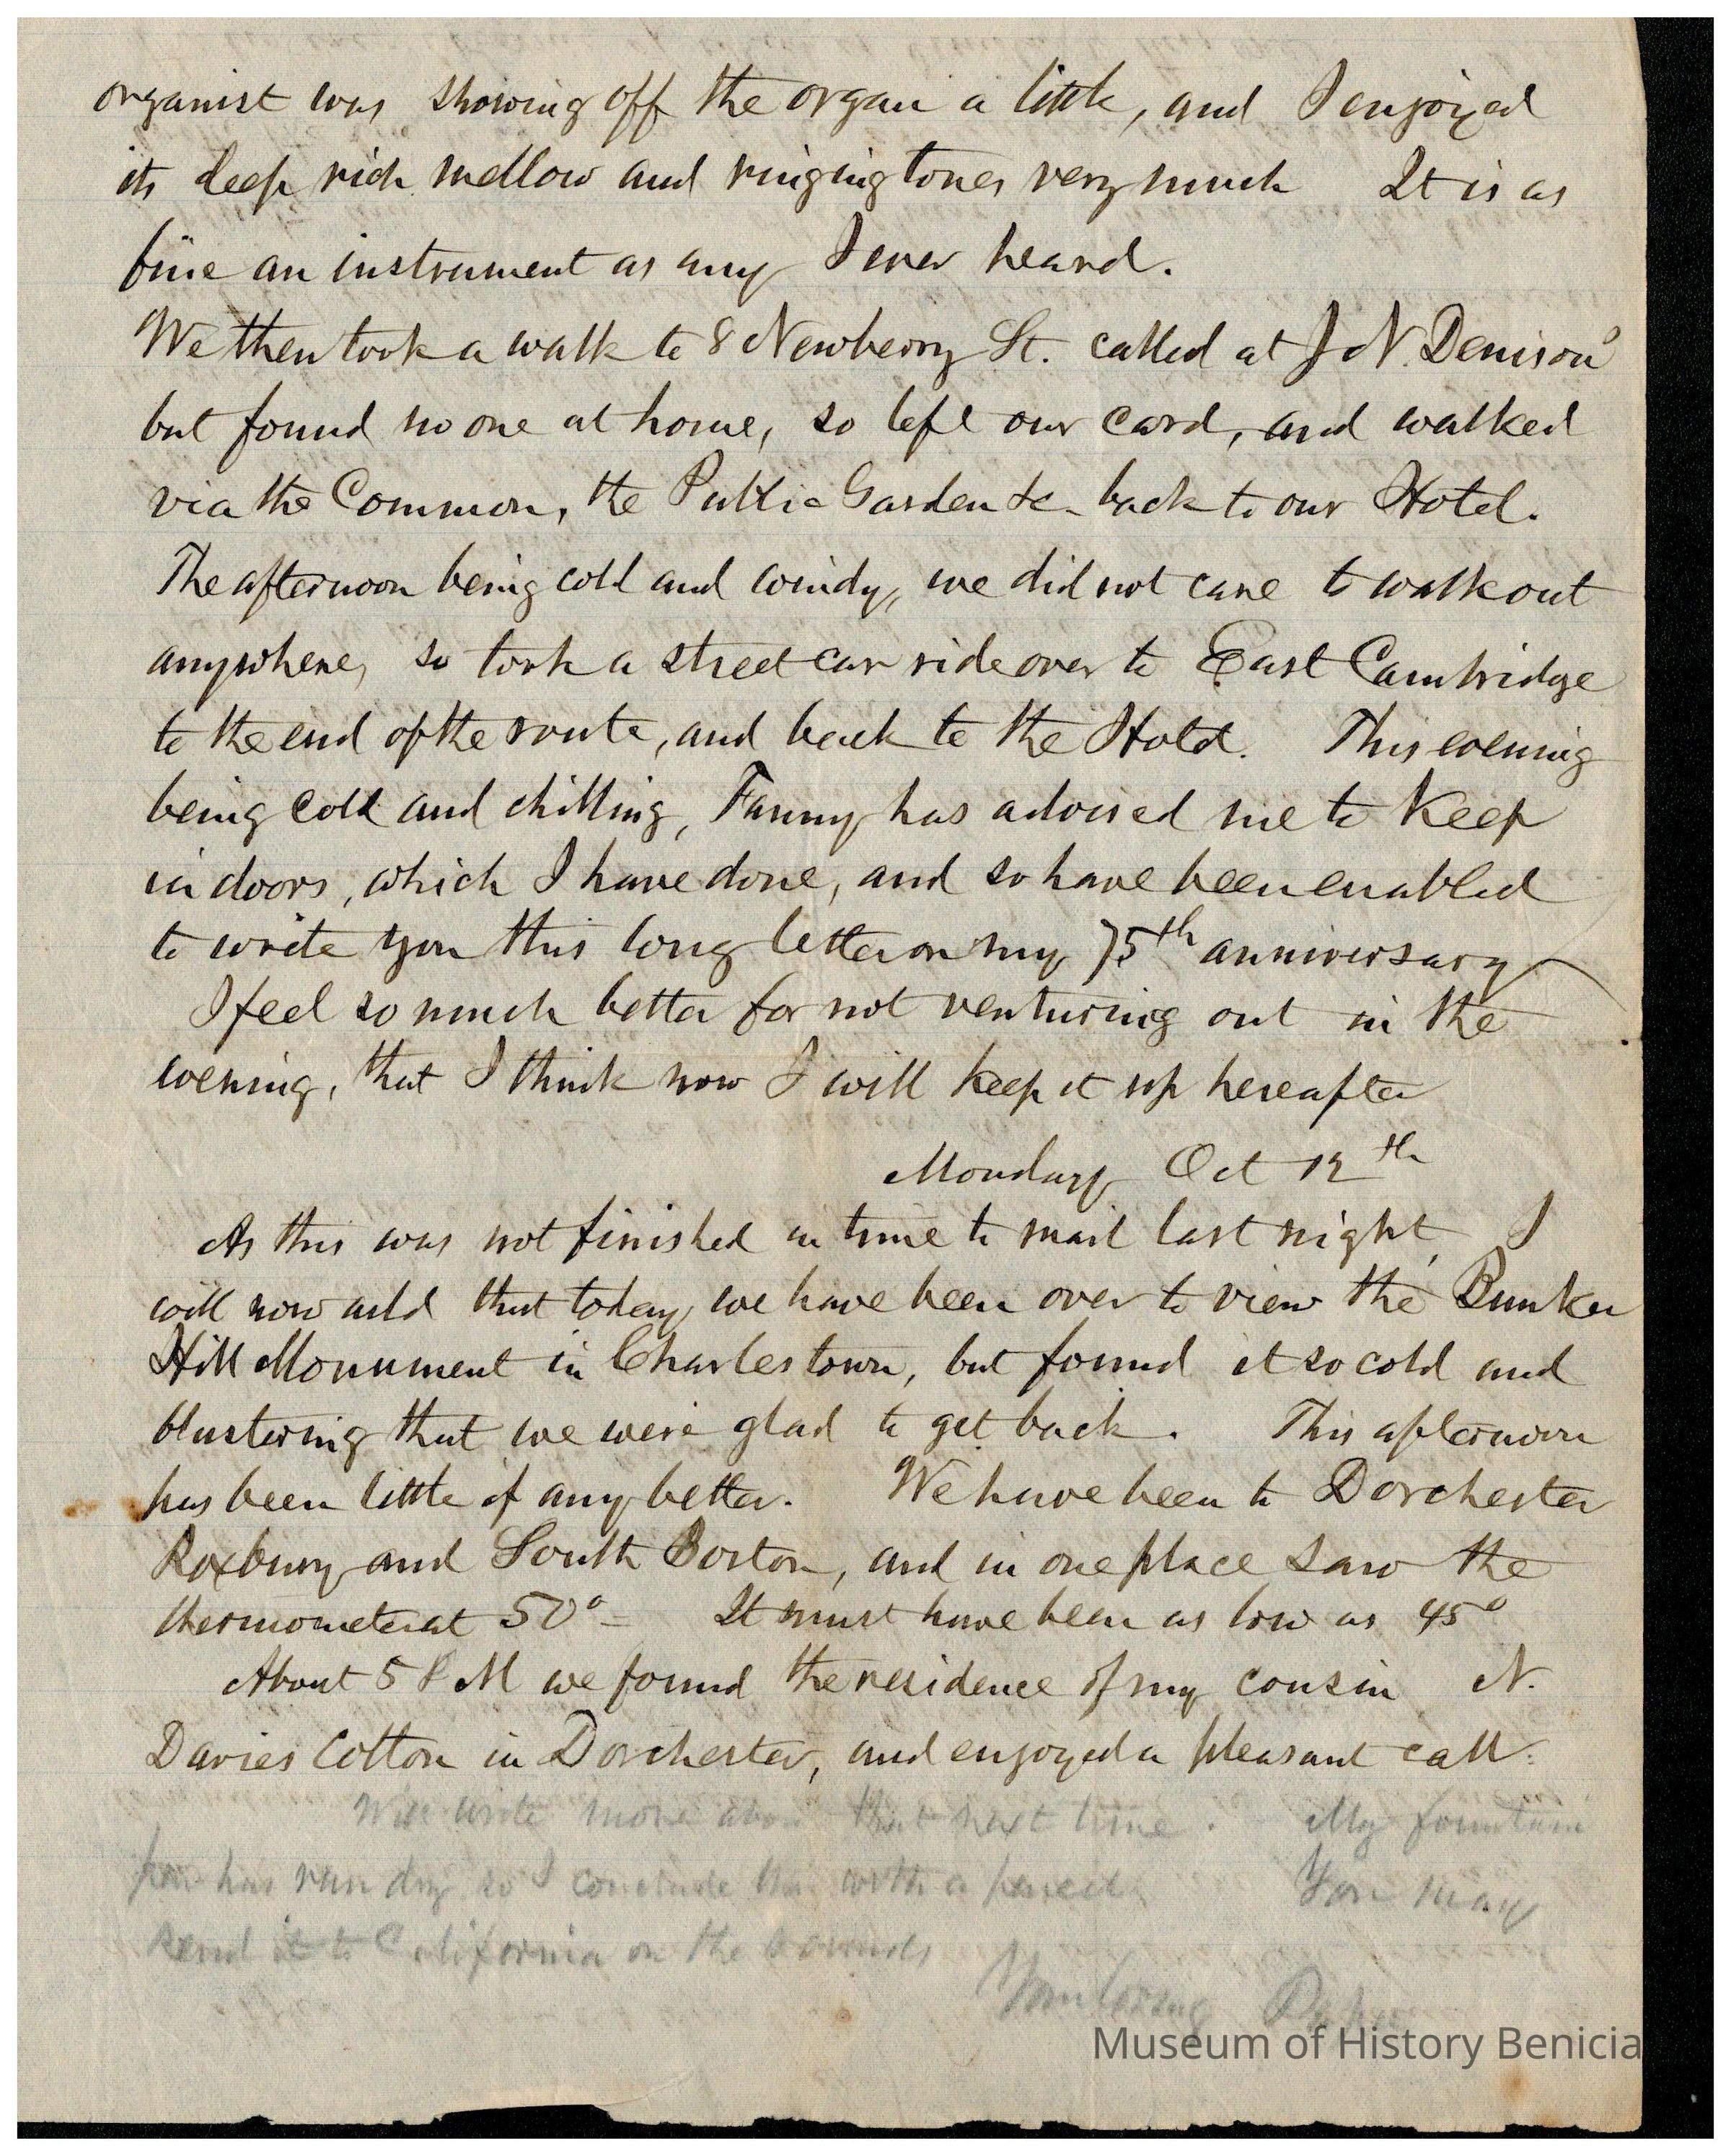 organist was showing off the organ a little, and I enjoyed
its deep rich mellow and ringing tones very much It is as
fine an instrument as any I ever heard.
We then took a walk to 8 Newberry St. called at J N. Denison's
but found no one at home, so left our card, and walked
via the Common, the Public Garden &c. back to our Hotel.
The afternoon being cold and windy, we did not care to walk out
anywhere, so took a street car ride over to East Cambridge
to the end of the route, and back to the Hotel. This evening
being cold and chilling, Fanny has advised me to keep
in doors, which I have done, and so have been enabled
to write you this long letter on my 75th anniversary
I feel so much better for not venturing out in the
evening, that I think now I will keep it up hereafter
Monday Oct 12th
As this was not finished in time to mail last night, I
will now add that today we have been over to view the Bunker
Hill Monument in Charlestown, but found it so cold and
blustering that we were glad to get back. This afternoon
has been little if any better. We have been to Dorchester
Roxbury and South Boston, and in one place saw the
thermometer at 50° - It must have been as low as 45°
About 5 P M we found the residence of my cousin N.
Davies Cotton in Dorchester, and enjoyed a pleasant call.
Will write more about that next time. My fountain
pen has run dry so I conclude this with a pencil. You may
send it to California on the rounds
Your loving Papa
Museum of History Benicia